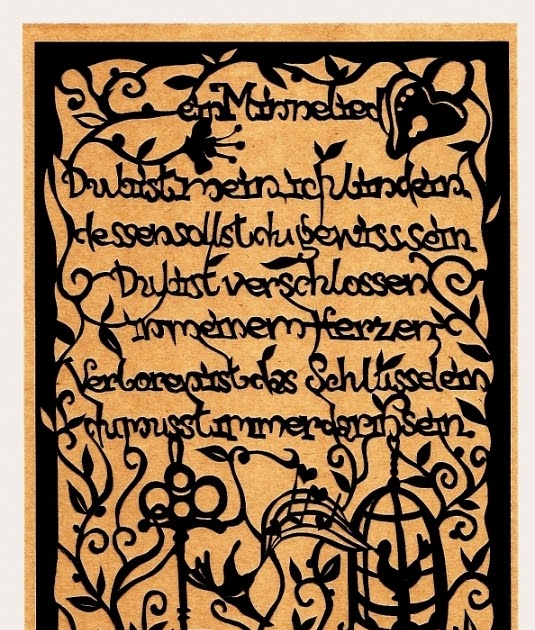 ein Minnelied
Du bist mein, ich bin dein.
dessen sollst du gewiss sein.
Du bist verschlossen
in meinem Herzen
Verloren ist das Schlüsselein
du musst immer darin sein.